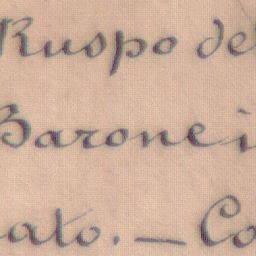 Ruspo del
Barone i
ato. — Co